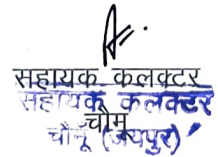 सहायक कलक्टर
सहायक कलक्टर
चौमू
चौमूं (जयपुर)